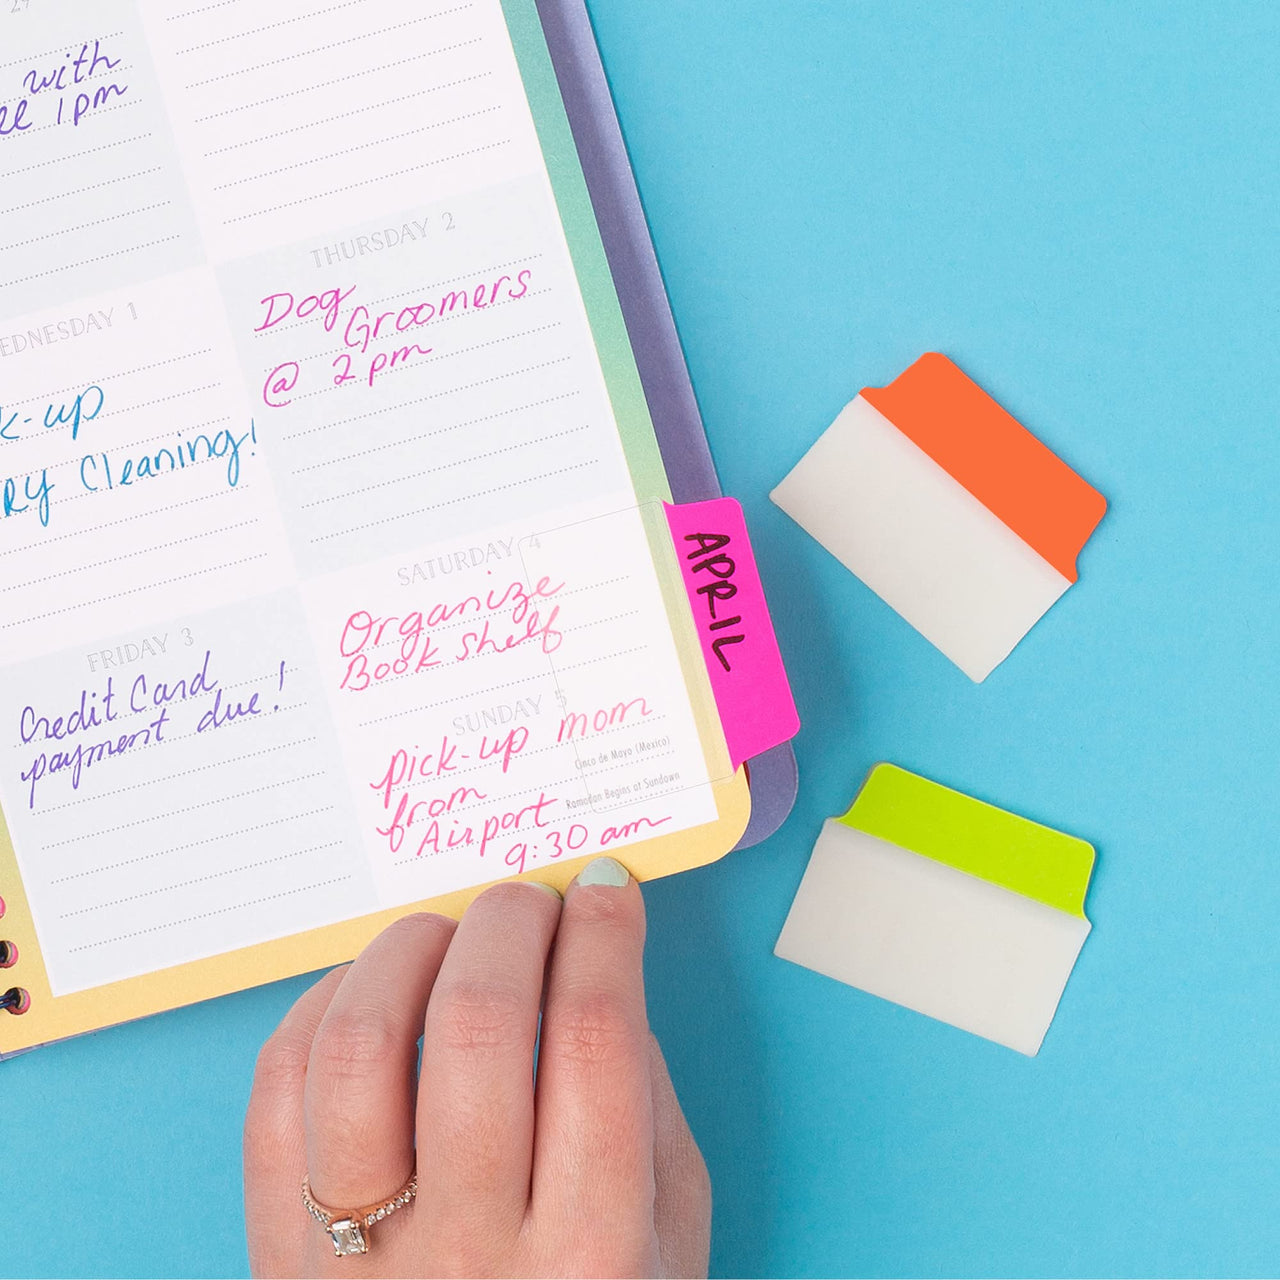 29
with
1pm
THURSDAY 2
Dog
Groomers
@ 2pm
WEDNESDAY 1
k-up
RY Cleaning!
APRIL
SATURDAY 4
Organize
Book Shelf
FRIDAY 3
Credit Card
payment due!
SUNDAY 5
pick-up mom
from
Airport
9:30 am
Cinco de Mayo (Mexico)
Ramadan Begins at Sundown